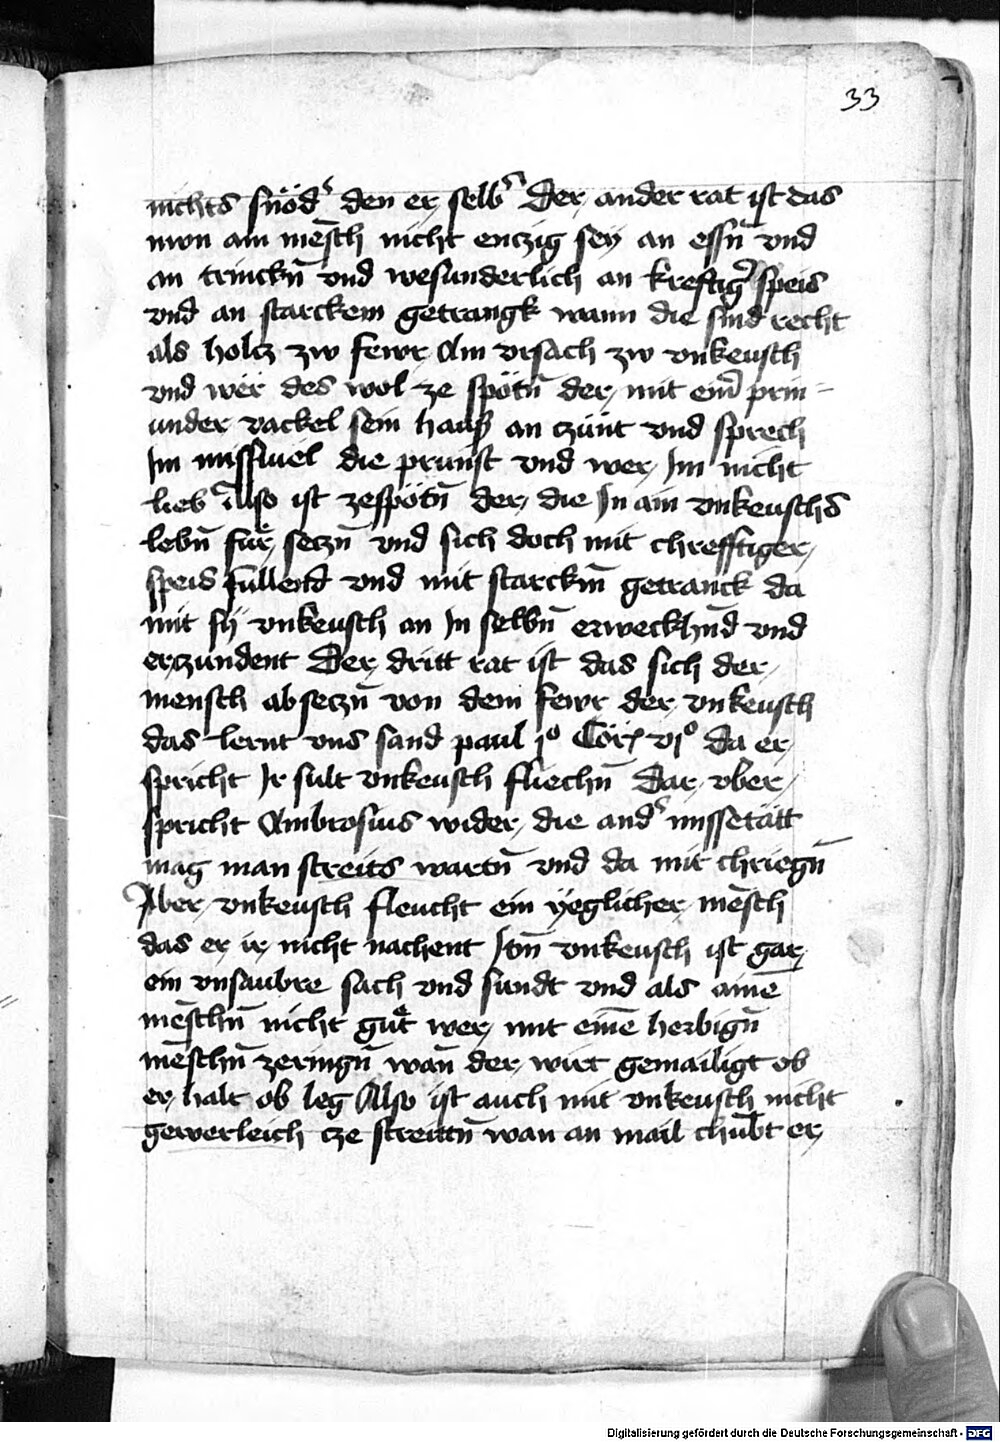 33
nichts snöd' den er selb' Der ander rat ist das
mon ain mēsch nicht enczig sey an essn̄ vnd
an trinckn̄ vnd wesunderlich an kreftig' speis
vnd an starckem getrangk wann die sind recht
als holcz zw fewr Ain vrsach zw vnkeusch
vnd wër des wol ze spötn̄ der mit eim̄ prin=
under vackel sein haus an czünt vnd sprech
Im missuiel die prunst vnd wer Im nicht
lieb Also ist zespötn̄ der die In ain vnkeuschs
lebn̄ für seczn̄ vnd sich doch mit chrefftiger
speis füllend vnd mit starckm̄ getranck da
mit sy vnkeusch an In selbn̄ erweckhnd vnd
erczundent Der dritt rat ist das sich der
mensch abseczn̄ von dem fewr der vnkeusch
das lernt vns sand paul jº Cor vjº da er
spricht Ir sult vnkeusch fliechn̄ Dar vber
spricht Ambrosius wider die and' missetätt
mag man streits wartn̄ vnd da mit chriegn̄
Aber vnkeusch fleucht ein yeglicher mēsch
das er ir nicht nachent Itm̄ vnkeusch ist gar
ein vnsaubre sach vnd sundt vnd als aine̅
mēschn̄ nicht gůt wer mit eine̅ herbign̄
mēschn̄ zeringn̄ wan̄ der wirt gemailigt ob
er halt ob leg Also ist auch mit vnkeusch nicht
gewerleich cze streittn̄ wan an mail chūbt er
Digitalisierung gefördert durch die Deutsche Forschungsgemeinschaft - DFG